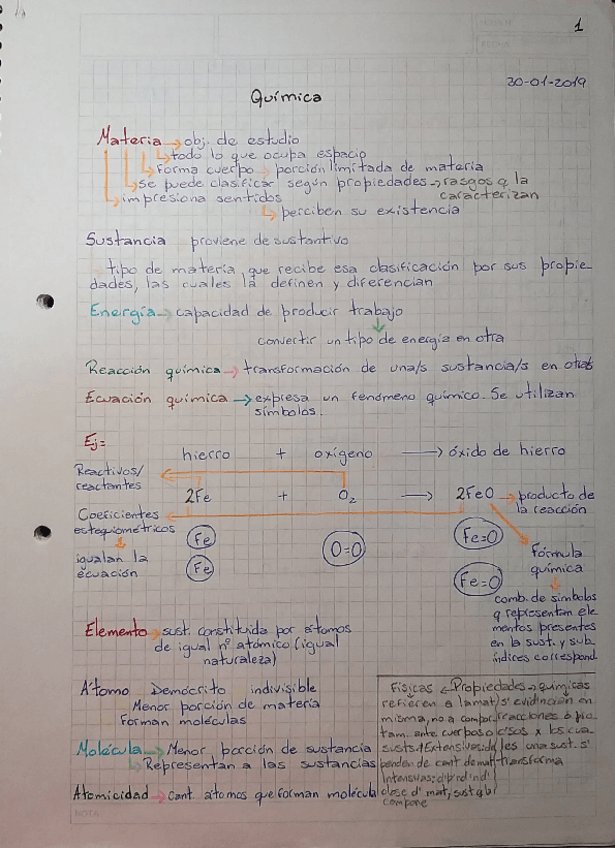 1
30-01-2019
Química
Materia → obj. de estudio
todo lo que ocupa espacio
Forma cuerpo → porción limitada de materia
Se puede clasificar según propiedades → rasgos q la
caracterizan
impresiona sentidos
perciben su existencia
Sustancia proviene de sustantivo
tipo de materia que recibe esa clasificación por sus propie-
dades, las cuales la definen y diferencian
Energía → capacidad de producir trabajo
convertir un tipo de energía en otra
Reacción química → transformación de una/s sustancia/s en otras
Ecuación química → expresa un fenómeno químico. Se utilizan
símbolos.
Ej=
hierro + oxígeno → óxido de hierro
Reactivos/
reactantes
2Fe + O2 → 2FeO → producto de
la reacción
Coeficientes
estequiométricos
igualan la
ecuación
Fe
Fe
O=O
Fe=O
Fe=O
Fórmula
química
comb. de símbolos
q representan ele
mentos presentes
en la sust. y sub.
índices correspond
Elemento → sust. constituida por átomos
de igual nº atómico (igual
naturaleza)
Átomo Demócrito indivisible
Menor porción de materia
Forman moléculas
Molécula → Menor porción de sustancia
Representan a las sustancias
Atomicidad → cant. átomos que forman molécula
Físicas ← Propiedades → químicas
refieren a la mat/
misma, no a compor/
tam. ante cuerpos o
susts.
reacciones
x las cua
les una sust. s'
transforma
penden de cant de mat
Intensivas:
clase d' mat, sust q l
compone
NOTA